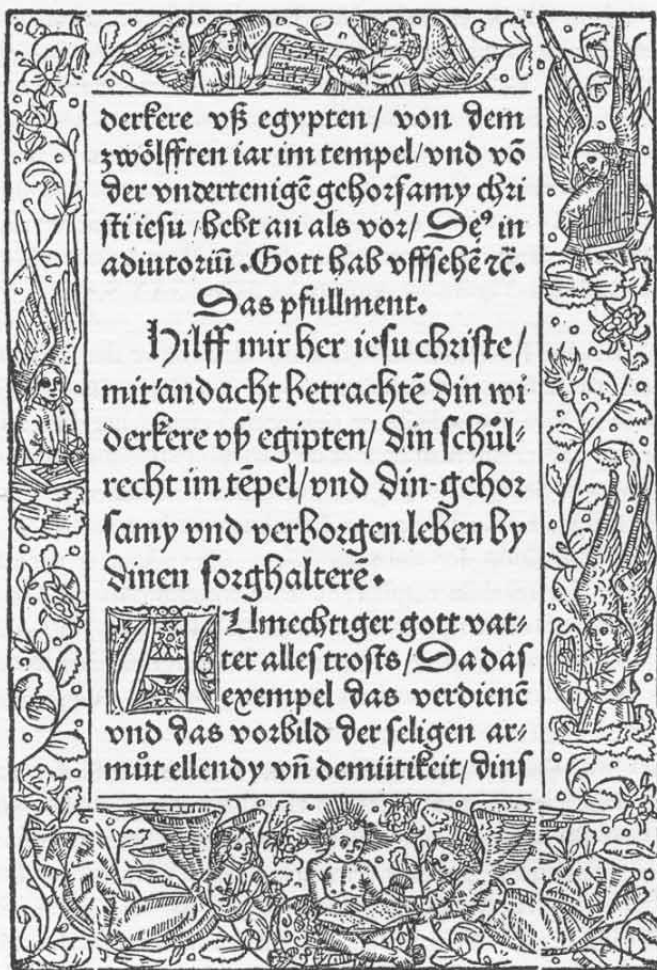 derkere vß egypten/ von dem
zwölfften iar im tempel/vnd vō
der vndertenigē gehorsamy chri
sti iesu /hebt an als vor/ Deꝰ in
adiutoriū .Gott hab vffsehē ⁊c̄.
Das pfullment.
Hilff mir her iesu christe/
mit andacht betrachtē din wi
derkere vß egipten/ din schůl⸗
recht im tēpel/vnd din gehor
samy vnd verborgen leben by
dinen sorghalterē.
ALmechtiger gott vat⸗
ter alles trosts/ Da das
exempel das verdienē
vnd das vorbild der seligen ar⸗
můt ellendy vn̄ demütikeit/ dins